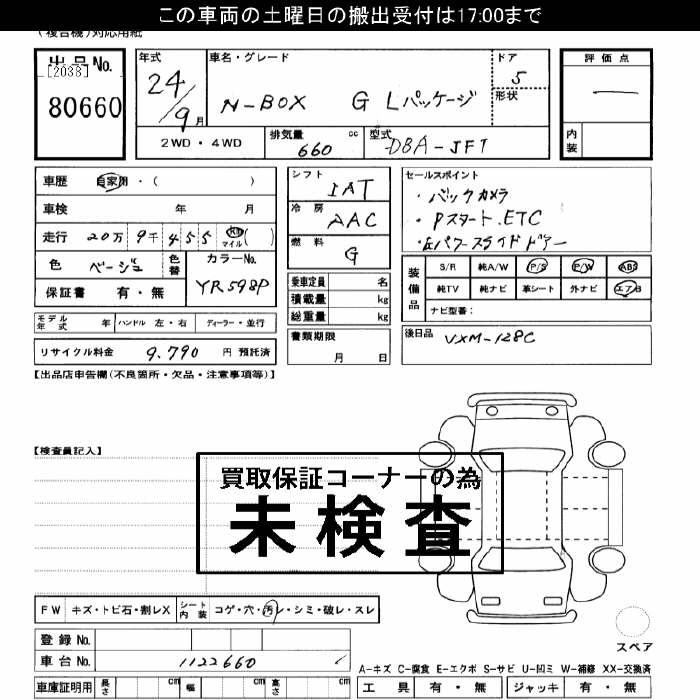 この車両の土曜日の搬出受付は17:00まで
(複合機)対応用紙
出品No.
[2038]
80660
年式
24/9月
車名・グレード
N-BOX G Lパッケージ
ドア
5
形状
2WD・4WD
排気量
660 cc
型式
DBA-JF1
評価点
内装
車歴 自家用・( )
車検 年 月
走行 20万 9千 4 5 5 km マイル( )
色 ベージュ 色替
カラーNo.
YR598P
保証書 有・無
シフト
IAT
冷房
AAC
燃料
G
乗車定員 名
積載量 kg
総重量 kg
書類期限
月 日
セールスポイント
・バックカメラ
・Pスタート.ETC
パワースライドドアー
装備品
S/R 純A/W P/S P/W ABS
純TV 純ナビ 革シート 外ナビ エアB
ナビ型番:
モデル年式 年 ハンドル 左・右 ディーラー・並行
リサイクル料金 9.790 円 預託済
後日品 VXM-128C
【出品店申告欄(不良箇所・欠品・注意事項等)】
【検査員記入】
買取保証コーナーの為
未検査
FW キズ・トビ石・割レX シート内装 コゲ・穴・汚レ・シミ・破レ・スレ
登録No.
車台No. 1122660
スペア
A-キズ C-腐食 E-エクボ S-サビ U-凹ミ W-補修 XX-交換済
車庫証明用 長さ cm 幅 cm 高さ cm
工具 有・無 ジャッキ 有・無